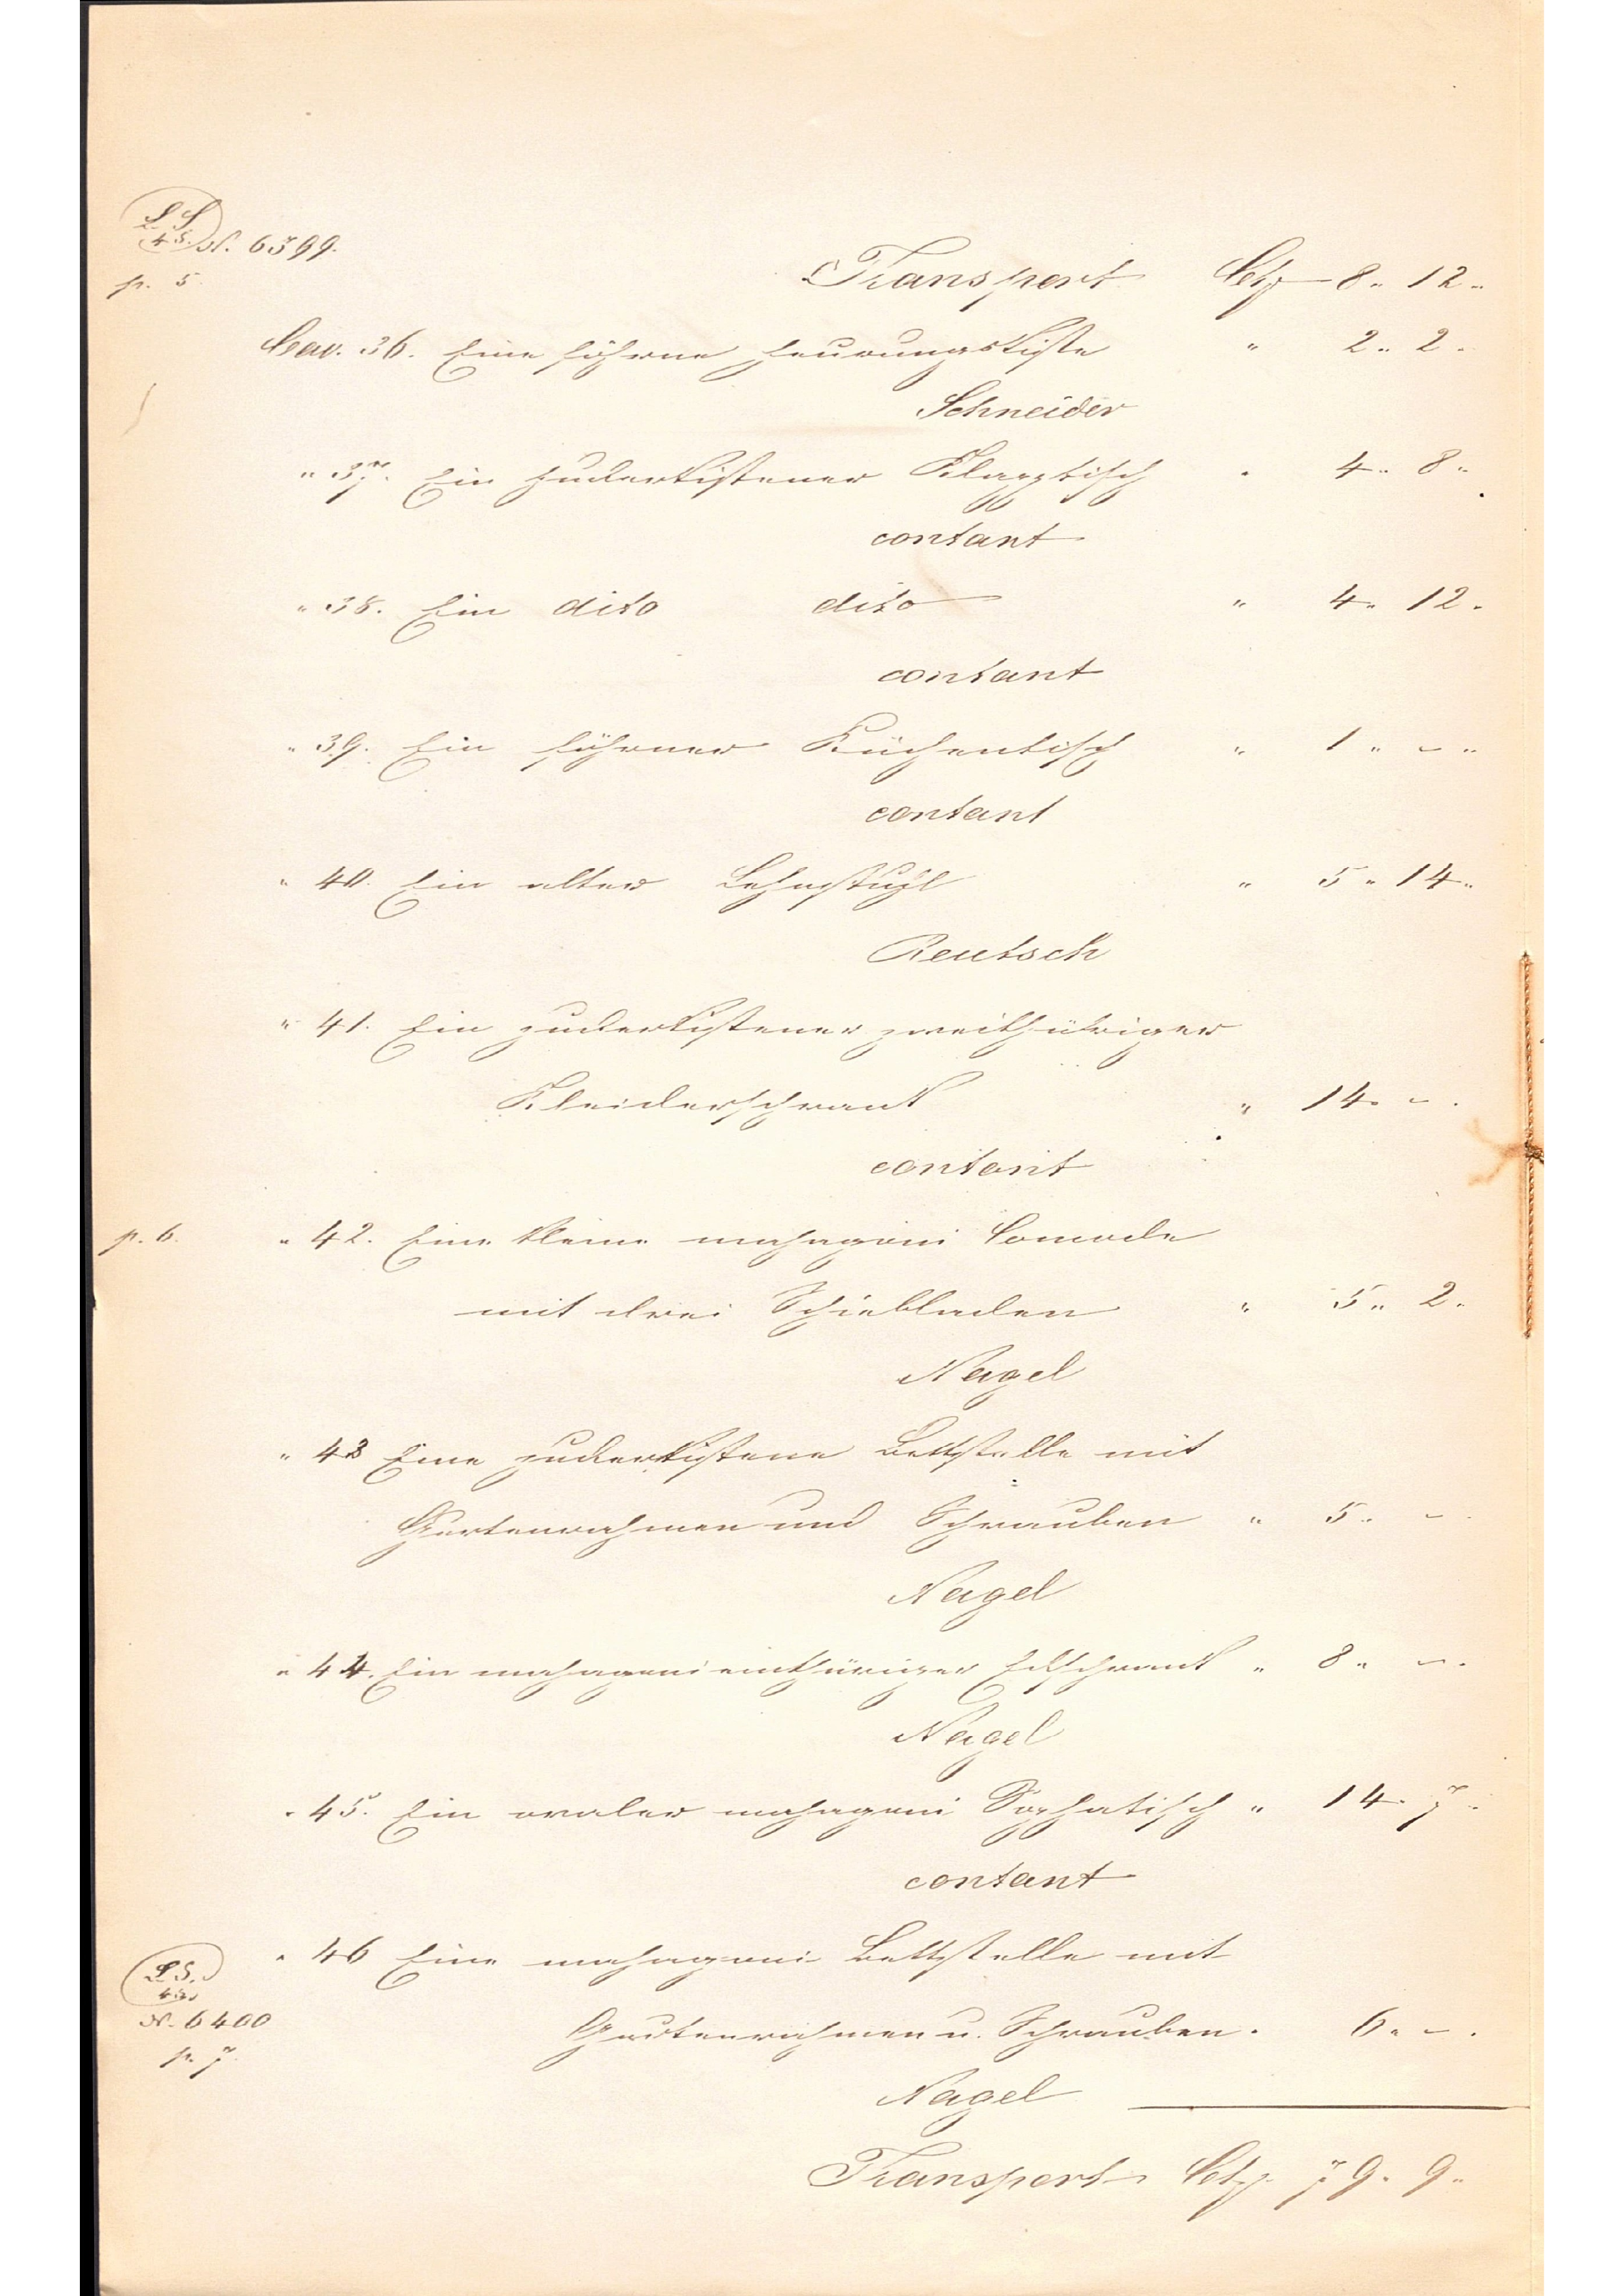 L S
4 S. N. 6399.
p. 5.
Transport Ct# 8 " 12 "
Cav. 36. Eine föhrne Feurungskiste " 2 " 2 "
Schneider
" 37. Ein zuckerkistener Klapptisch " 4 " 8 "
contant
" 38. Ein dito dito " 4 " 12 "
contant
" 39. Ein föhrner Küchentisch " 1 " – "
contant
" 40. Ein alter Lehnstuhl " 5 " 14 "
Reutsch
" 41. Ein zuckerkistener zweithüriger
Kleiderschrank " 14 " – "
contant
p. 6. " 42. Eine kleine mahagoni Comode
mit drei Schiebladen " 5 " 2 "
Nagel
" 43 Eine zuckerkistene Bettstelle mit
Gurtenrahmen und Schrauben " 5 " – "
Nagel
" 44. Ein mahagoni einthüriger Eckschrank " 8 " – "
Nagel
" 45. Ein ovaler mahagoni Sophatisch " 14 " 7 "
contant
" 46 Eine mahagoni Bettstelle mit
L S.
4 S.
N. 6400
Gurtenrahmen u. Schrauben " 6 " – "
p. 7.
Nagel
Transport Ct# 79 " 9 "